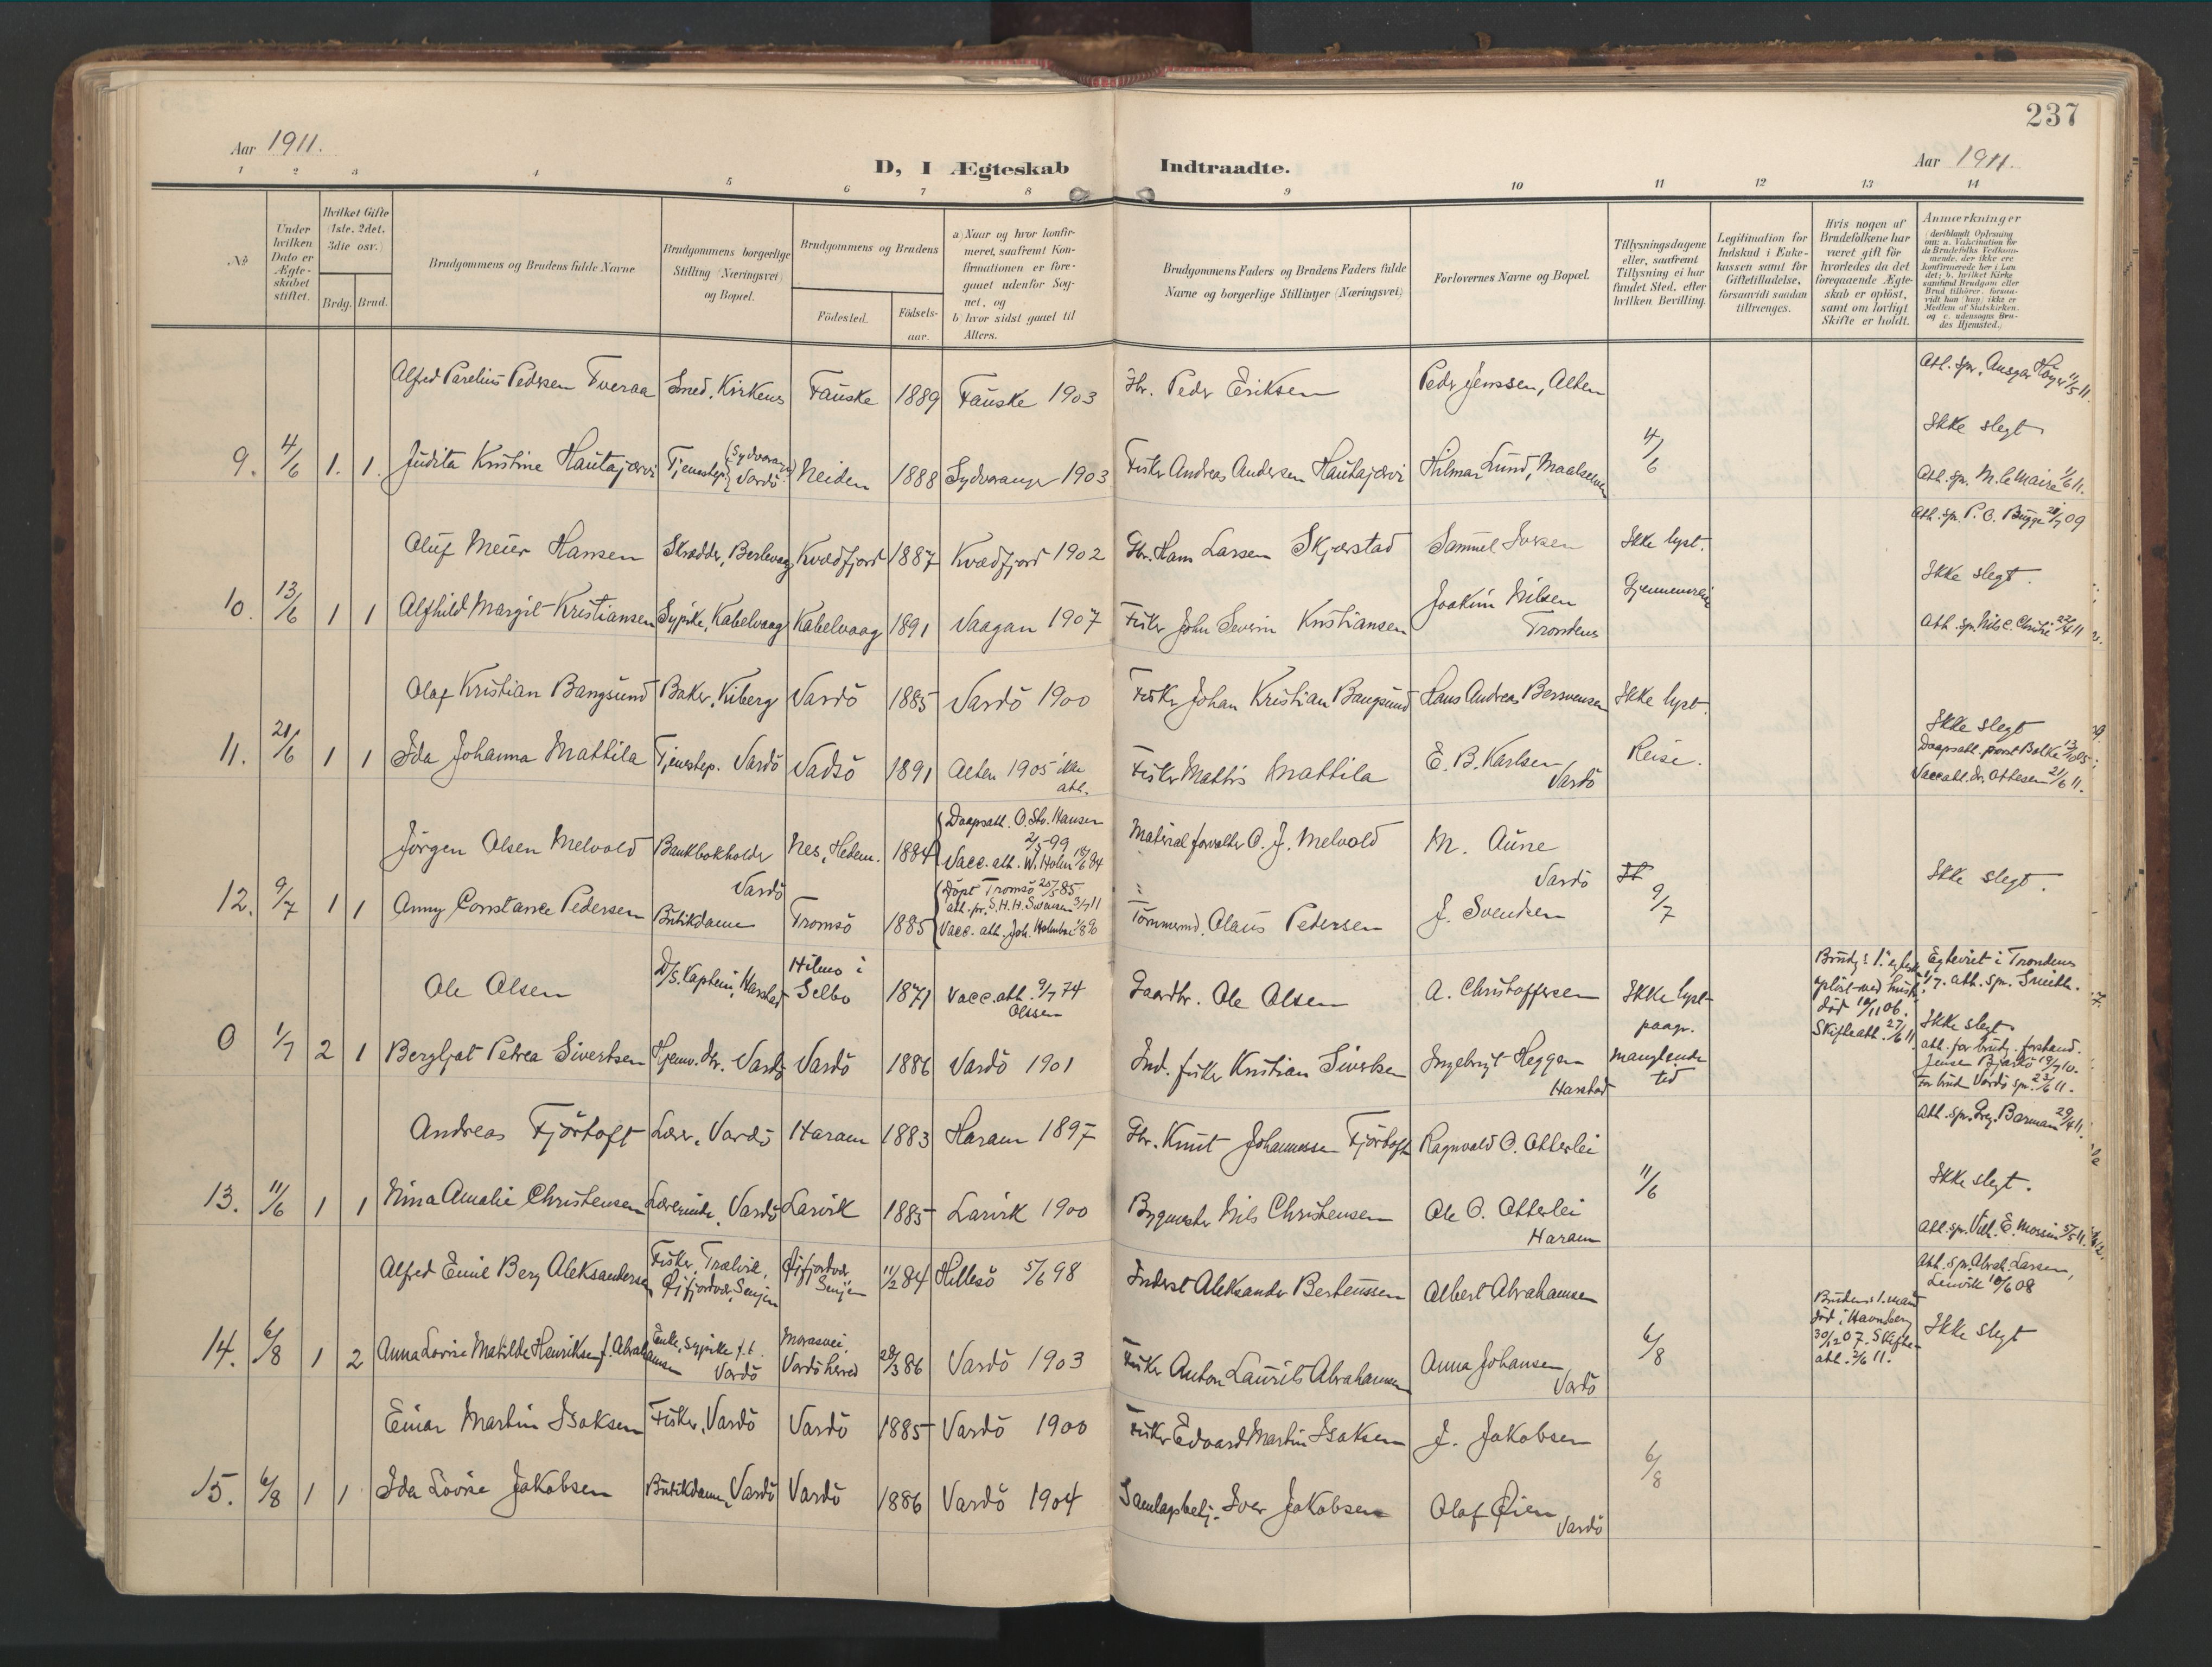 237
Aar 1911.
D, I Ægteskab Indtraadte.
Aar 1911.
1 2 3 4 5 6 7 8 9 10 11 12 13 14
No
Under hvilken Dato er Ægteskabet stiftet.
Hvilket Gifte (1ste, 2det, 3die osv.)
Brdg. Brud.
Brudgommens og Brudens fulde Navne
Brudgommens borgerlige Stilling (Næringsvei) og Bopæl.
Brudgommens og Brudens
Födested.
Födselsaar.
a) Naar og hvor konfirmeret, saafremt Konfirmationen er foregaaet udenfor Sognet, og
b) hvor sidst gaaet til Alters.
Brudgommens Faders og Brudens Faders fulde Navne og borgerlige Stillinger (Næringsvei)
Forlovernes Navne og Bopæl.
Tillysningsdagene eller, saafremt Tillysning ei har fundet Sted, efter hvilken Bevilling.
Legitimation for Indskud i Enkekassen samt for Giftetilladelse, forsaavidt saadan tiltrænges.
Hvis nogen af Brudefolkene har været gift før hvorledes da det foregaaende Ægteskab er oplöst, samt om lovligt Skifte er holdt.
Anmærkninger
Alfred Parelius Pedersen Tveraa Smed, Kirkenes Fauske 1889 Fauske 1903 Gbr. Peder Eriksen Peder Jenssen, Alten Att. spr. Ansgar Høyer 11/5 11.
Ikke slegt
9. 4/6 1. 1. Judita Kristine Hautajærvi Tjenestep. (Sydvaranger) Vardö Neiden 1888 Sydvaranger 1903 Fisker Andreas Andersen Hautajærvi Hilmar Lund, Maalselven 4/6 Att. spr. M. le Maire 1/6 11.
Oluf Meier Hansen Skrædder, Berlevaag Kvædfjord 1887 Kvædfjord 1902 Gbr. Hans Larsen Skjærstad Samuel Iversen Ikke lyst. Att. sp. P. O. Bugge 09
Ikke slegt.
10. 13/6 1 1 Alfhild Margit Kristiansen Sypike, Kabelvaag Kabelvaag 1891 Vaagan 1907 Fisker John Severin Kristiansen Joakim Nilsen Trondenes Gjennemreise Att. spr. Nils C. Christie 22/4 11
Olaf Kristian Bangsund Baker, Kiberg Vardö 1885 Vardö 1900 Fisker Johan Kristian Bangsund Hans Andreas Bersvensen Ikke lyst.
Ikke slegt
11. 21/6 1 1 Ida Johanna Mattila Tjenestep. Vardö Vadsö 1891 Alten 1905 ikke att. Fisker Mattis Mattila E. B. Karlsen Vardö Reise. Daapsatt. prost Balke 13/10 05
Vacc att. dr. Ottesen 21/6 11.
Jörgen Olsen Melvold Bankbokholder Vardö Nes, Hedem. 1884 Daapsatt. O. Str. Hansen 2/5 99
Vacc. att. W. Holm 18/6 84 Materialforvalter O. J. Melvold M. Aune Vardö
Ikke slegt.
12. 9/7 1 1 Anny Constance Pedersen Butikdame Tromsö 1885 Döpt Tromsö 25/5 85.
att. pr. S. H. H. Svensen 3/7 11
Vacc. att. Joh. Holmboe 1/8 90 Tömmermd. Olaus Pedersen J. Svendsen 9/7
Ole Olsen D/S. Kaptein, Harstad Hilmo i Selbo 1871 Vacc. att. 9/7 74 Olssen Gaardbr. Ole Olsen A. Christoffersen Ikke lyst paagr. manglende tid
Brudg.s 1. egtesk. oplöst ved hustr. död 10/11 06. Skifteatt. 27/6 11.
Egteviet i Trondenes 1/7. att. spr. Smith.
Ikke slegt.
0 1/7 2 1 Bergljot Petrea Sivertsen Hjemv. dtr. Vardö Vardö 1886 Vardö 1901 Ind. fisker Kristian Sivertsen Ingebrigt Heggen Harstad att. for brudg. forstand. Jensen Bjarkö 19/7 10.
For brud Vardö spr. 23/6 11.
Andreas Fjörtoft Lærer, Vardö Haram 1883 Haram 1897 Gbr. Knut Johannessen Fjörtoft Ragnvald O. Otterlei Att. spr. Greg. Barman 29/4 11.
Ikke slegt.
13. 11/6 1 1 Nina Amalie Christensen Lærerinde, Vardö Larvik 1885 Larvik 1900 Bygmester Nils Christensen Ole O. Otterlei Haram 11/6 Att. spr. Vilh. E. Mossin 5/5 11.
Alfred Emil Berg Aleksandersen Fisker, Trælvik, Öifjordvær, Senjen Öifjordvær Senjen 11/2 84 Hillesö 5/6 98 Inderst Aleksander Berteussen Albert Abrahamsen Att. spr. Abrah. Larssen, Lenvik 10/6 08
Brudens 1. mand död i Havnsberg 30/12 07. Skifteatt. 2/6 11.
Ikke slegt
14. 6/8 1 2 Anna Lovise Matilde Henriksen f. Abrahamsen Enke, sypike f.t. Vardö Morasvei, Vardö herred 28/3 86 Vardö 1903 Fisker Anton Laurits Abrahamsen Anna Johansen, Vardö 6/8
Einar Martin Isaksen Fisker, Vardö Vardö 1885 Vardö 1900 Fisker Edvard Martin Isaksen J. Jakobsen
15. 6/8 1 1 Ida Lovise Jakobsen Butikdame, Vardö Vardö 1886 Vardö 1904 Samlagsbetj. Iver Jakobsen Olaf Öien, Vardö 6/8